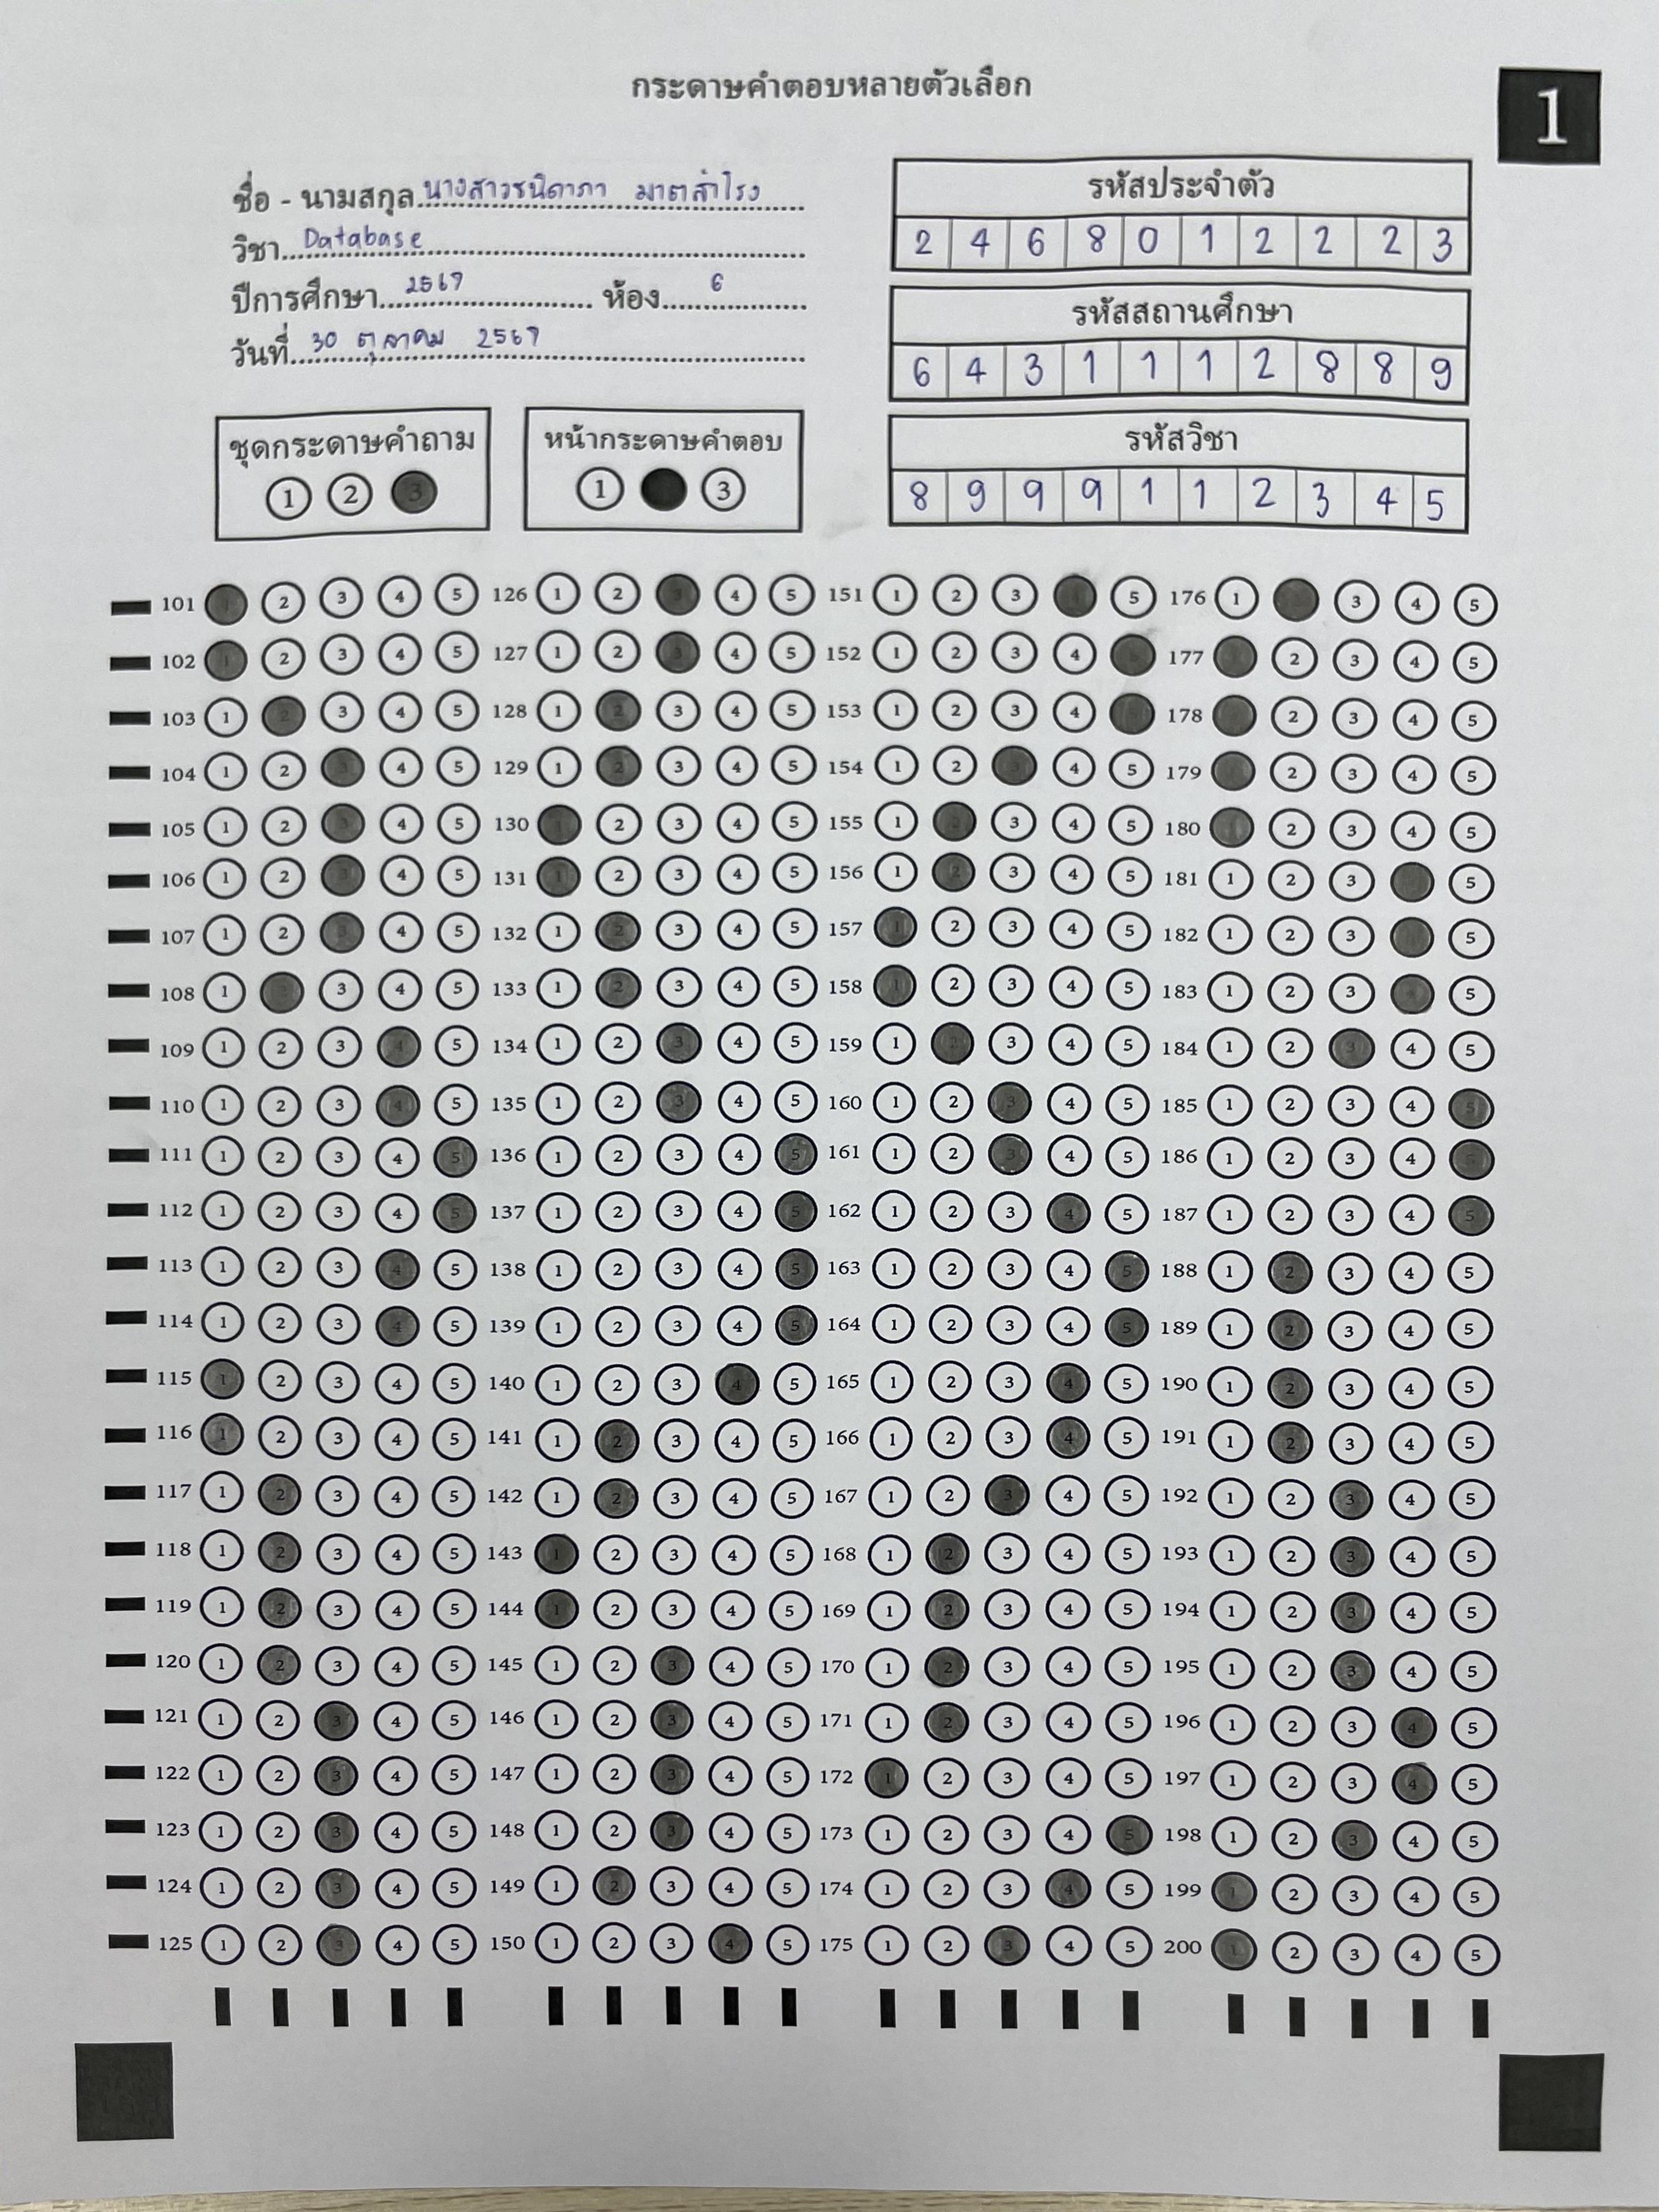 กระดาษคำตอบหลายตัวเลือก
1
ชื่อ - นามสกุล นางสาวธนิดาภา มาตสำโรง
วิชา Database
ปีการศึกษา 2567 ห้อง 6
วันที่ 30 ตุลาคม 2567
รหัสประจำตัว
2 4 6 8 0 1 2 2 2 3
รหัสสถานศึกษา
6 4 3 1 1 1 2 8 8 9
รหัสวิชา
8 9 9 9 1 1 2 3 4 5
ชุดกระดาษคำถาม
1 2 3
หน้ากระดาษคำตอบ
1 3
101 1 2 3 4 5 126 1 2 3 4 5 151 1 2 3 5 176 1 3 4 5
102 1 2 3 4 5 127 1 2 3 4 5 152 1 2 3 4 177 2 3 4 5
103 1 2 3 4 5 128 1 2 3 4 5 153 1 2 3 4 178 2 3 4 5
104 1 2 3 4 5 129 1 2 3 4 5 154 1 2 3 4 5 179 2 3 4 5
105 1 2 3 4 5 130 1 2 3 4 5 155 1 2 3 4 5 180 1 2 3 4 5
106 1 2 3 4 5 131 1 2 3 4 5 156 1 2 3 4 5 181 1 2 3 5
107 1 2 3 4 5 132 1 2 3 4 5 157 1 2 3 4 5 182 1 2 3 5
108 1 2 3 4 5 133 1 2 3 4 5 158 1 2 3 4 5 183 1 2 3 4 5
109 1 2 3 4 5 134 1 2 3 4 5 159 1 2 3 4 5 184 1 2 3 4 5
110 1 2 3 4 5 135 1 2 3 4 5 160 1 2 3 4 5 185 1 2 3 4 5
111 1 2 3 4 5 136 1 2 3 4 5 161 1 2 3 4 5 186 1 2 3 4 5
112 1 2 3 4 5 137 1 2 3 4 5 162 1 2 3 4 5 187 1 2 3 4 5
113 1 2 3 4 5 138 1 2 3 4 5 163 1 2 3 4 5 188 1 2 3 4 5
114 1 2 3 4 5 139 1 2 3 4 5 164 1 2 3 4 5 189 1 2 3 4 5
115 1 2 3 4 5 140 1 2 3 4 5 165 1 2 3 4 5 190 1 2 3 4 5
116 1 2 3 4 5 141 1 2 3 4 5 166 1 2 3 4 5 191 1 2 3 4 5
117 1 2 3 4 5 142 1 2 3 4 5 167 1 2 3 4 5 192 1 2 3 4 5
118 1 2 3 4 5 143 1 2 3 4 5 168 1 2 3 4 5 193 1 2 3 4 5
119 1 2 3 4 5 144 1 2 3 4 5 169 1 2 3 4 5 194 1 2 3 4 5
120 1 2 3 4 5 145 1 2 3 4 5 170 1 2 3 4 5 195 1 2 3 4 5
121 1 2 3 4 5 146 1 2 3 4 5 171 1 2 3 4 5 196 1 2 3 4 5
122 1 2 3 4 5 147 1 2 3 4 5 172 1 2 3 4 5 197 1 2 3 4 5
123 1 2 3 4 5 148 1 2 3 4 5 173 1 2 3 4 5 198 1 2 3 4 5
124 1 2 3 4 5 149 1 2 3 4 5 174 1 2 3 4 5 199 1 2 3 4 5
125 1 2 3 4 5 150 1 2 3 4 5 175 1 2 3 4 5 200 1 2 3 4 5